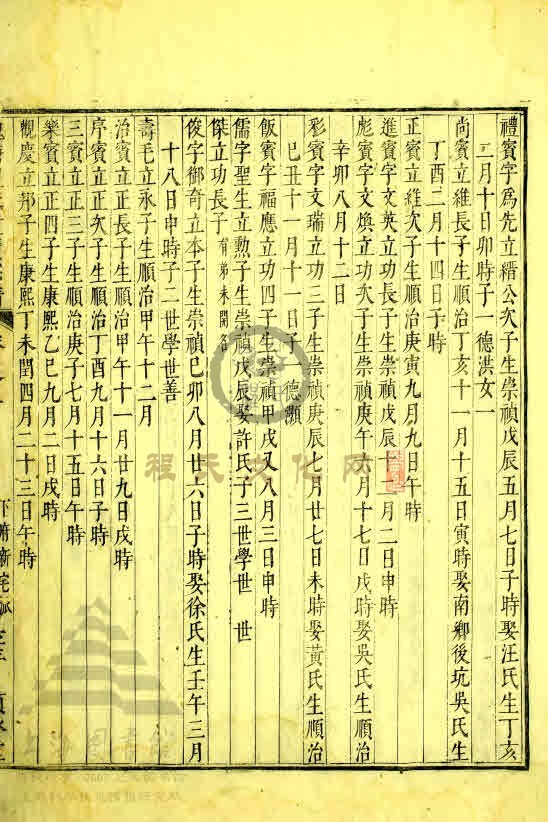 禮賓字為先立縉公次子生崇禎戊辰五月七日子時娶汪氏生丁亥
二月十日卯時子一德洪女一
尚賓立維長子生順治丁亥十一月十五日寅時娶南鄉後坑吳氏生
丁酉二月十四日子時
正賓立維次子生順治庚寅九月九日午時
進賓字文英立功長子生崇禎戊辰 月二日申時
彪賓字文煥立功次子生崇禎庚午六月十七日戌時娶吳氏生順治
辛卯八月十二日
彩賓字文瑞立功三子生崇禎庚辰七月廿七日未時娶黃氏生順治
己丑十一月十一日子一德灝
飯賓字福應立功四子生崇禎甲戌又八月三日申時
儒字聖生立勲子生崇禎戊辰娶許氏子三世學世 世
傑立功長子有弟未開名
俊字御奇立本子生崇禎己卯八月廿六日子時娶徐氏生壬午三月
十八日申時子二世學世善
壽毛立永子生順治甲午十二月
治賓立正長子生順治甲午十一月廿九日戌時
序賓立正次子生順治丁酉九月十六日子時
三賓立正三子生順治庚子七月十五日午時
樂賓立正四子生康熙乙巳九月二日戌時
觀慶立邦子生康熙丁未閏四月二十三日午時
程氏文化网